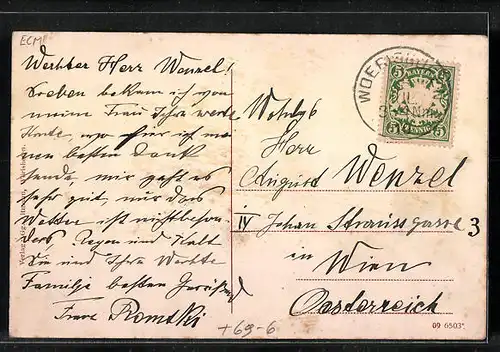 ECMP
Werther Herr Wenzel!
Soeben bekam ich von
meine Frau Ihre werte
Karte, wofür ich
nen besten Dank
sende, mir geht es
sehr gut, nur das
Wetter ist nicht beson-
ders, Regen und Kalt
Sie und Ihre Werthe
Familie besten Gruss
Franz Romski
+69-6
Wohlg
Herr
August Wenzel
IV Johan Straussgasse 3
in
Wien
Oesterreich
BAYERN
5 5
PFENNIG
09 6503